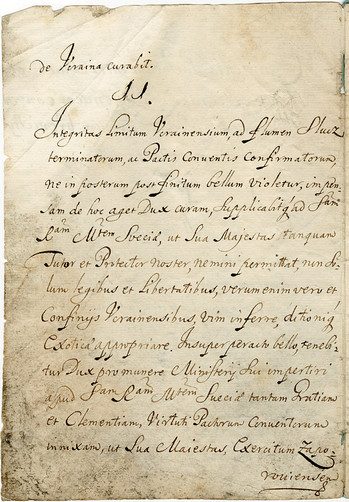 de Vcraina curabit.
11.
Integritas limitum Vcrainensium, ad flumen Sluez
terminatorum, ac Pactis Conventis Confirmatorum
ne in posterum post finitum bellum violetur, impen
sam de hoc aget Dux curam, supplicabitq̃ ad Sam
Ram Mtem Sueciæ, ut Sua Majestas tanquam
Tutor et Protector noster, nemini permittat, non so
lum legibus et Libertatibus, verumenim vero et
Confinijs Vcrainensibus, vim inferre, ditioniq̃
Exoticæ appropriare. Insuper peracto bello, tenebi
tur Dux pro munere Ministerij sui impertiri
apud Sam Ram Mtem Sueciæ tantam Gratiam
et Clementiam, Virtuti Pactorum Conventorum
innixam, ut Sua Maiestas, Exercitum Zapo
roviensem